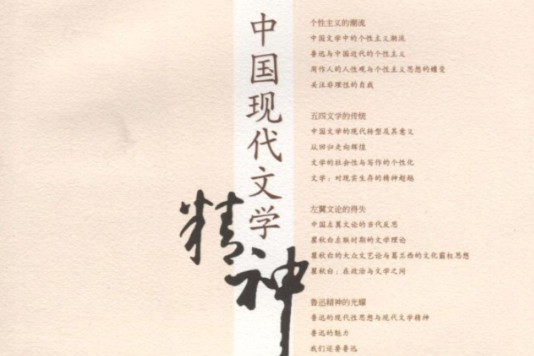 中国现代文学
精神
个性主义的潮流
中国文学中的个性主义潮流
鲁迅与中国近代的个性主义
周作人的人性观与个性主义思想的嬗变
关注非理性的自我
五四文学的传统
中国文学的现代转型及其意义
从回归走向辉煌
文学的社会性与写作的个性化
文学：对现实生存的精神超越
左翼文论的得失
中国左翼文论的当代反思
瞿秋白左联时期的文学理论
瞿秋白的大众文艺论与葛兰西的文化霸权思想
瞿秋白：在政治与文学之间
鲁迅精神的光耀
鲁迅的现代性思想与现代文学精神
鲁迅的魅力
我们还要鲁迅